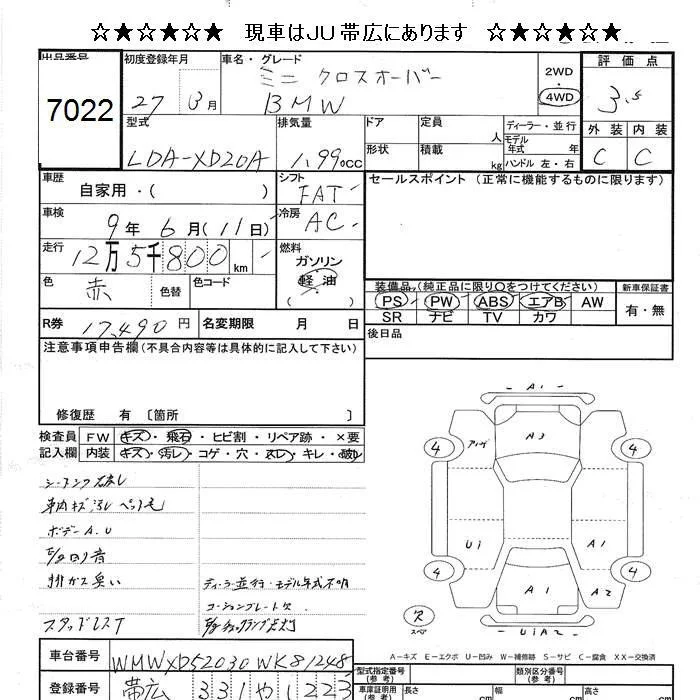 ☆★☆★☆★ 現車はJU帯広にあります ☆★☆★☆★
出品番号
7022
初度登録年月
27 3月
車名・グレード
ミニ クロスオーバー
BMW
2WD
4WD
評価点
3.5
外装 内装
C C
型式
LDA-XD20A
排気量
1.99 cc
ドア
定員
人
形状
積載
kg
ディーラー・並行
モデル年式 年
ハンドル 左・右
車歴
自家用・( )
シフト
FAT
セールスポイント (正常に機能するものに限ります)
車検
9年 6月(11日)
冷房
AC
走行
12万5千800km
燃料
ガソリン
軽油
( )
色
赤
色替
色コード
装備品(純正品に限り○をつけてください)
PS PW ABS エアB AW
SR ナビ TV カワ
新車保証書
有・無
R券 17,490円
名変期限 月 日
後日品
注意事項申告欄(不具合内容等は具体的に記入して下さい)
修復歴 有 〔箇所 〕
検査員記入欄
FW キズ・飛石・ヒビ割・リペア跡・×要
内装 キズ・汚レ・コゲ・穴・スレ・キレ・破レ
車内キズ汚レ ペット毛
ボデーA.U
排ガス臭い
スタッドレスT
ディーラー並行・モデル年式不明
コーションプレート欠
A1
A3
4 4
U1 A1
4 4
A1 A2
U1A2
スペア
A-キズ E-エクボ U-凹み W-補修跡 S-サビ C-腐食 XX-交換済
車台番号
WMWXD52030WK81248
登録番号
帯広 331や1223
型式指定番号(参考)
類別区分番号(参考)
車庫証明用(参考)
長さ cm
幅 cm
高さ cm